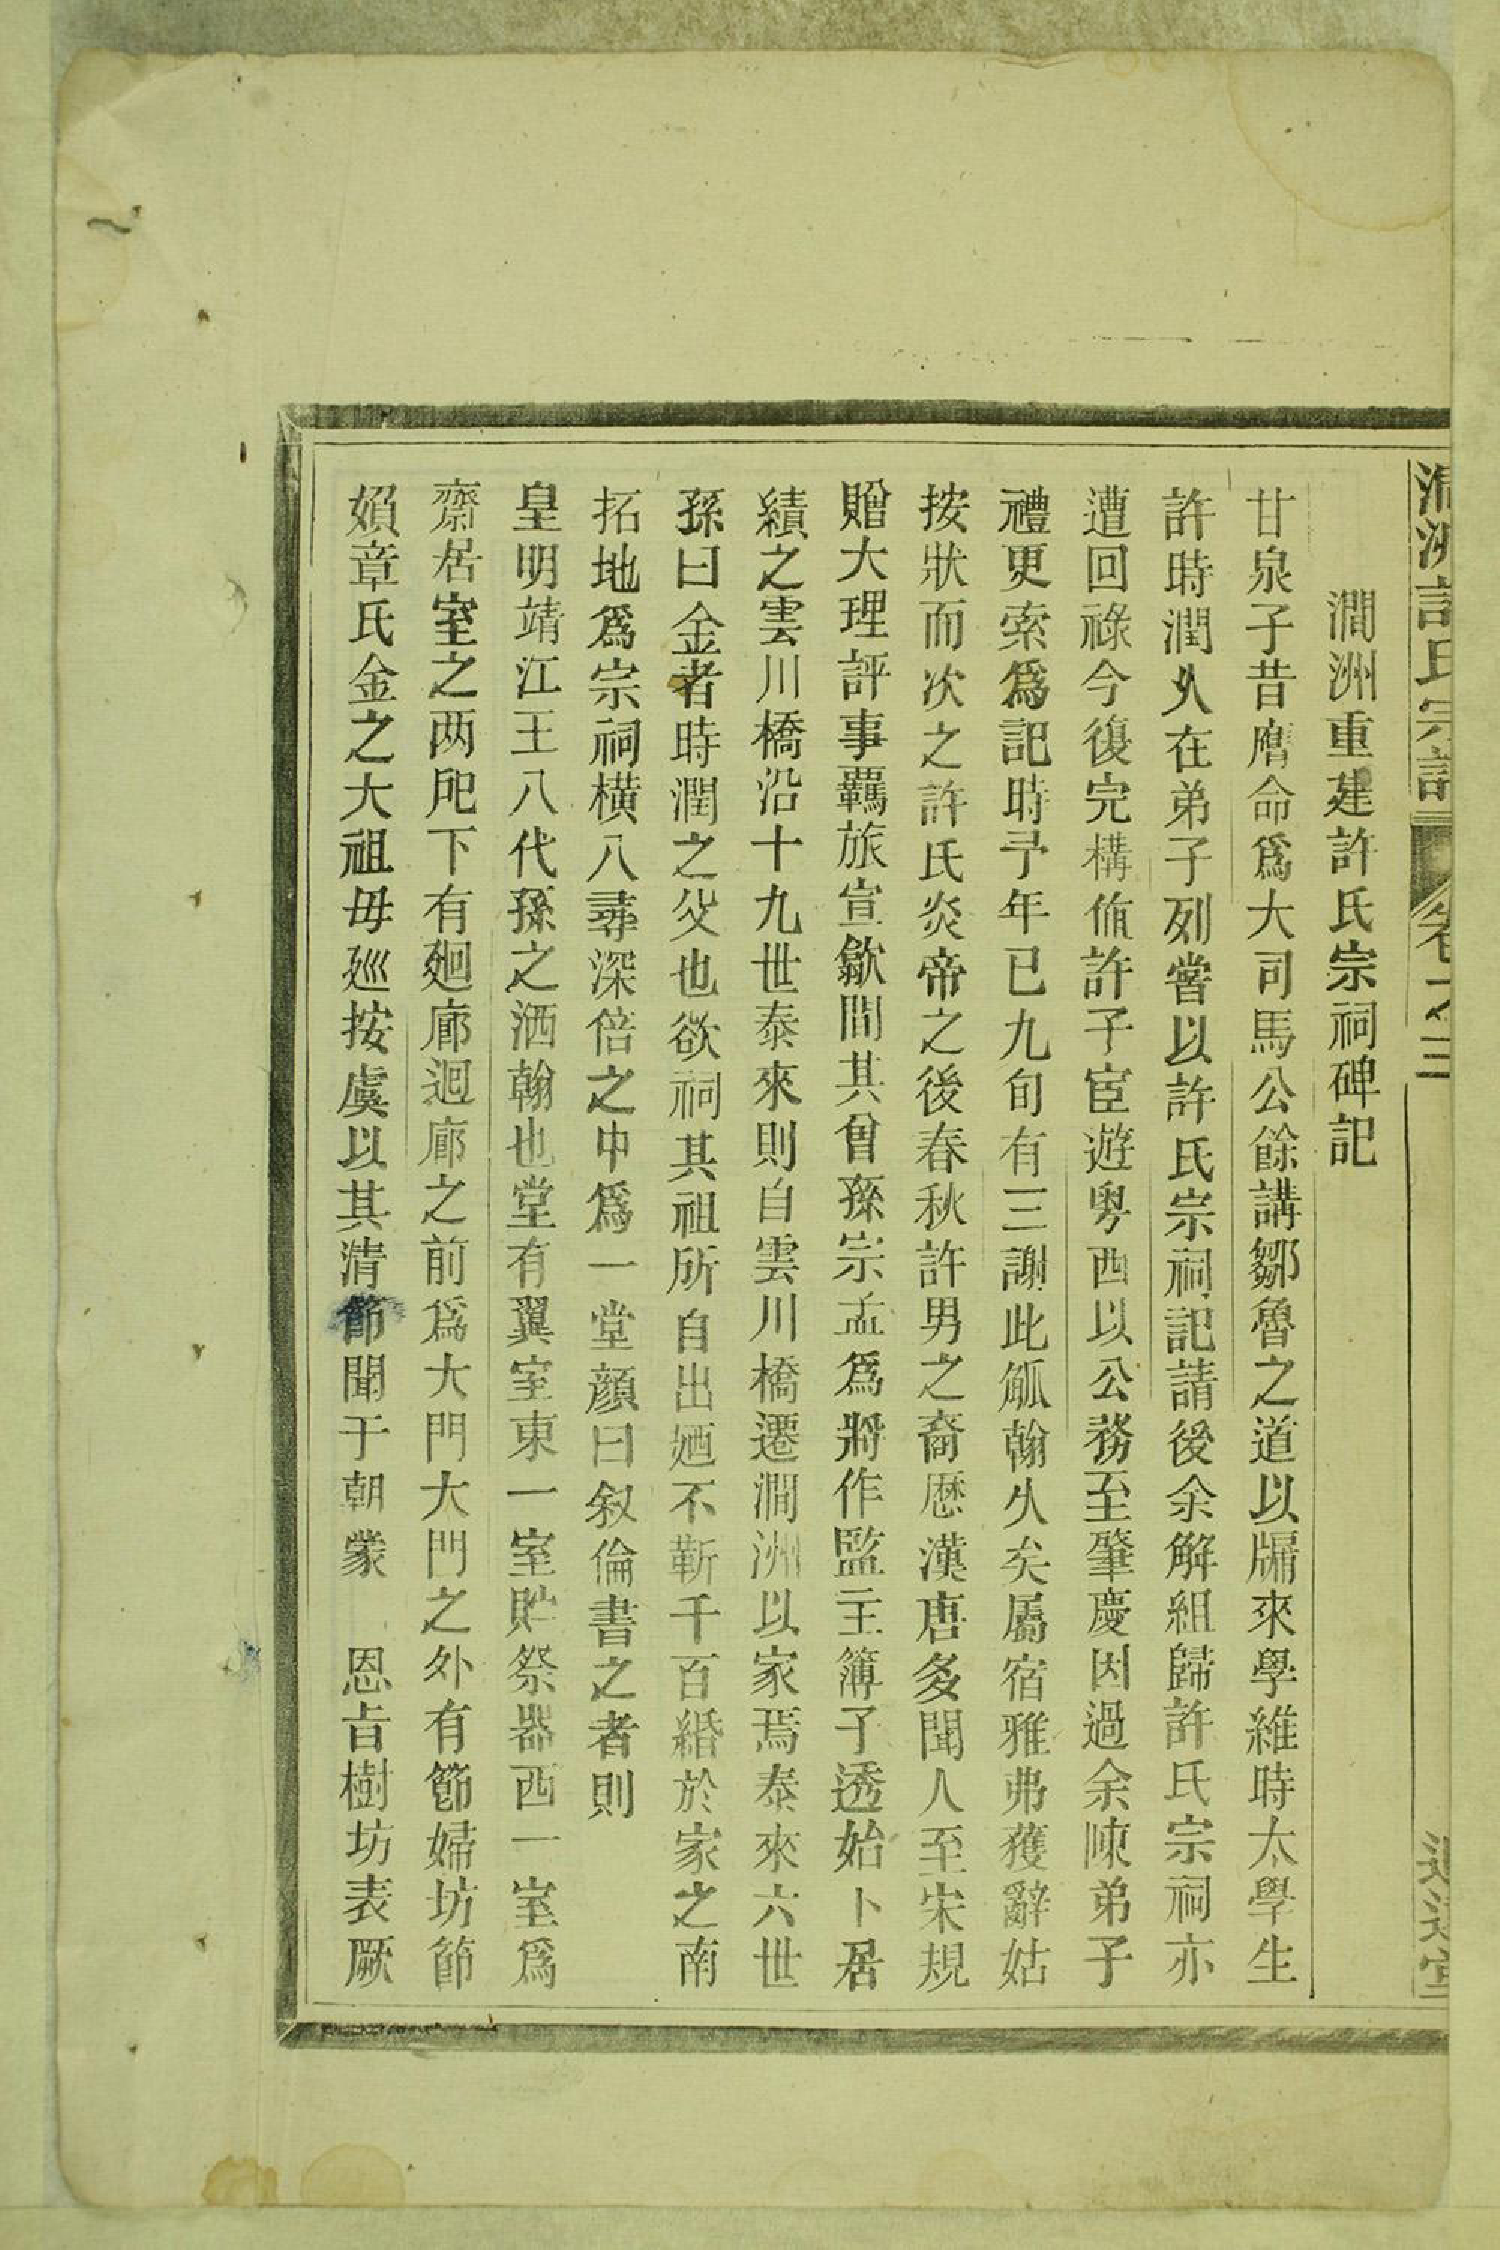 澗洲許氏宗譜 卷之三
澗洲重建許氏宗祠碑記
甘泉子昔膺命爲大司馬公餘講鄒魯之道以牖來學維時太學生
許時潤久在弟子列嘗以許氏宗祠記請後余解組歸許氏宗祠亦
遭回祿今復完構侑許子宦遊粤西以公務至肇慶因過余陳弟子
禮更索爲記時予年已九旬有三謝此觚翰久矣屬宿雅弗獲辭姑
按狀而次之許氏炎帝之後春秋許男之裔歷漢唐多聞人至宋規
贈大理評事覊旅宣歙間其曾孫宗孟爲將作監主簿子透始卜居
績之雲川橋沿十九世泰來則自雲川橋遷澗洲以家焉泰來六世
孫曰金者時潤之父也欲祠其祖所自出廼不靳千百緡於家之南
拓地爲宗祠橫八尋深倍之中爲一堂顔曰叙倫書之者則
皇明靖江王八代孫之洒翰也堂有翼室東一室貯祭器西一室爲
齋居室之两戺下有廻廊迴廊之前爲大門大門之外有節婦坊節
媍章氏金之大祖母廵按虞以其清節聞于朝蒙 恩旨樹坊表厥